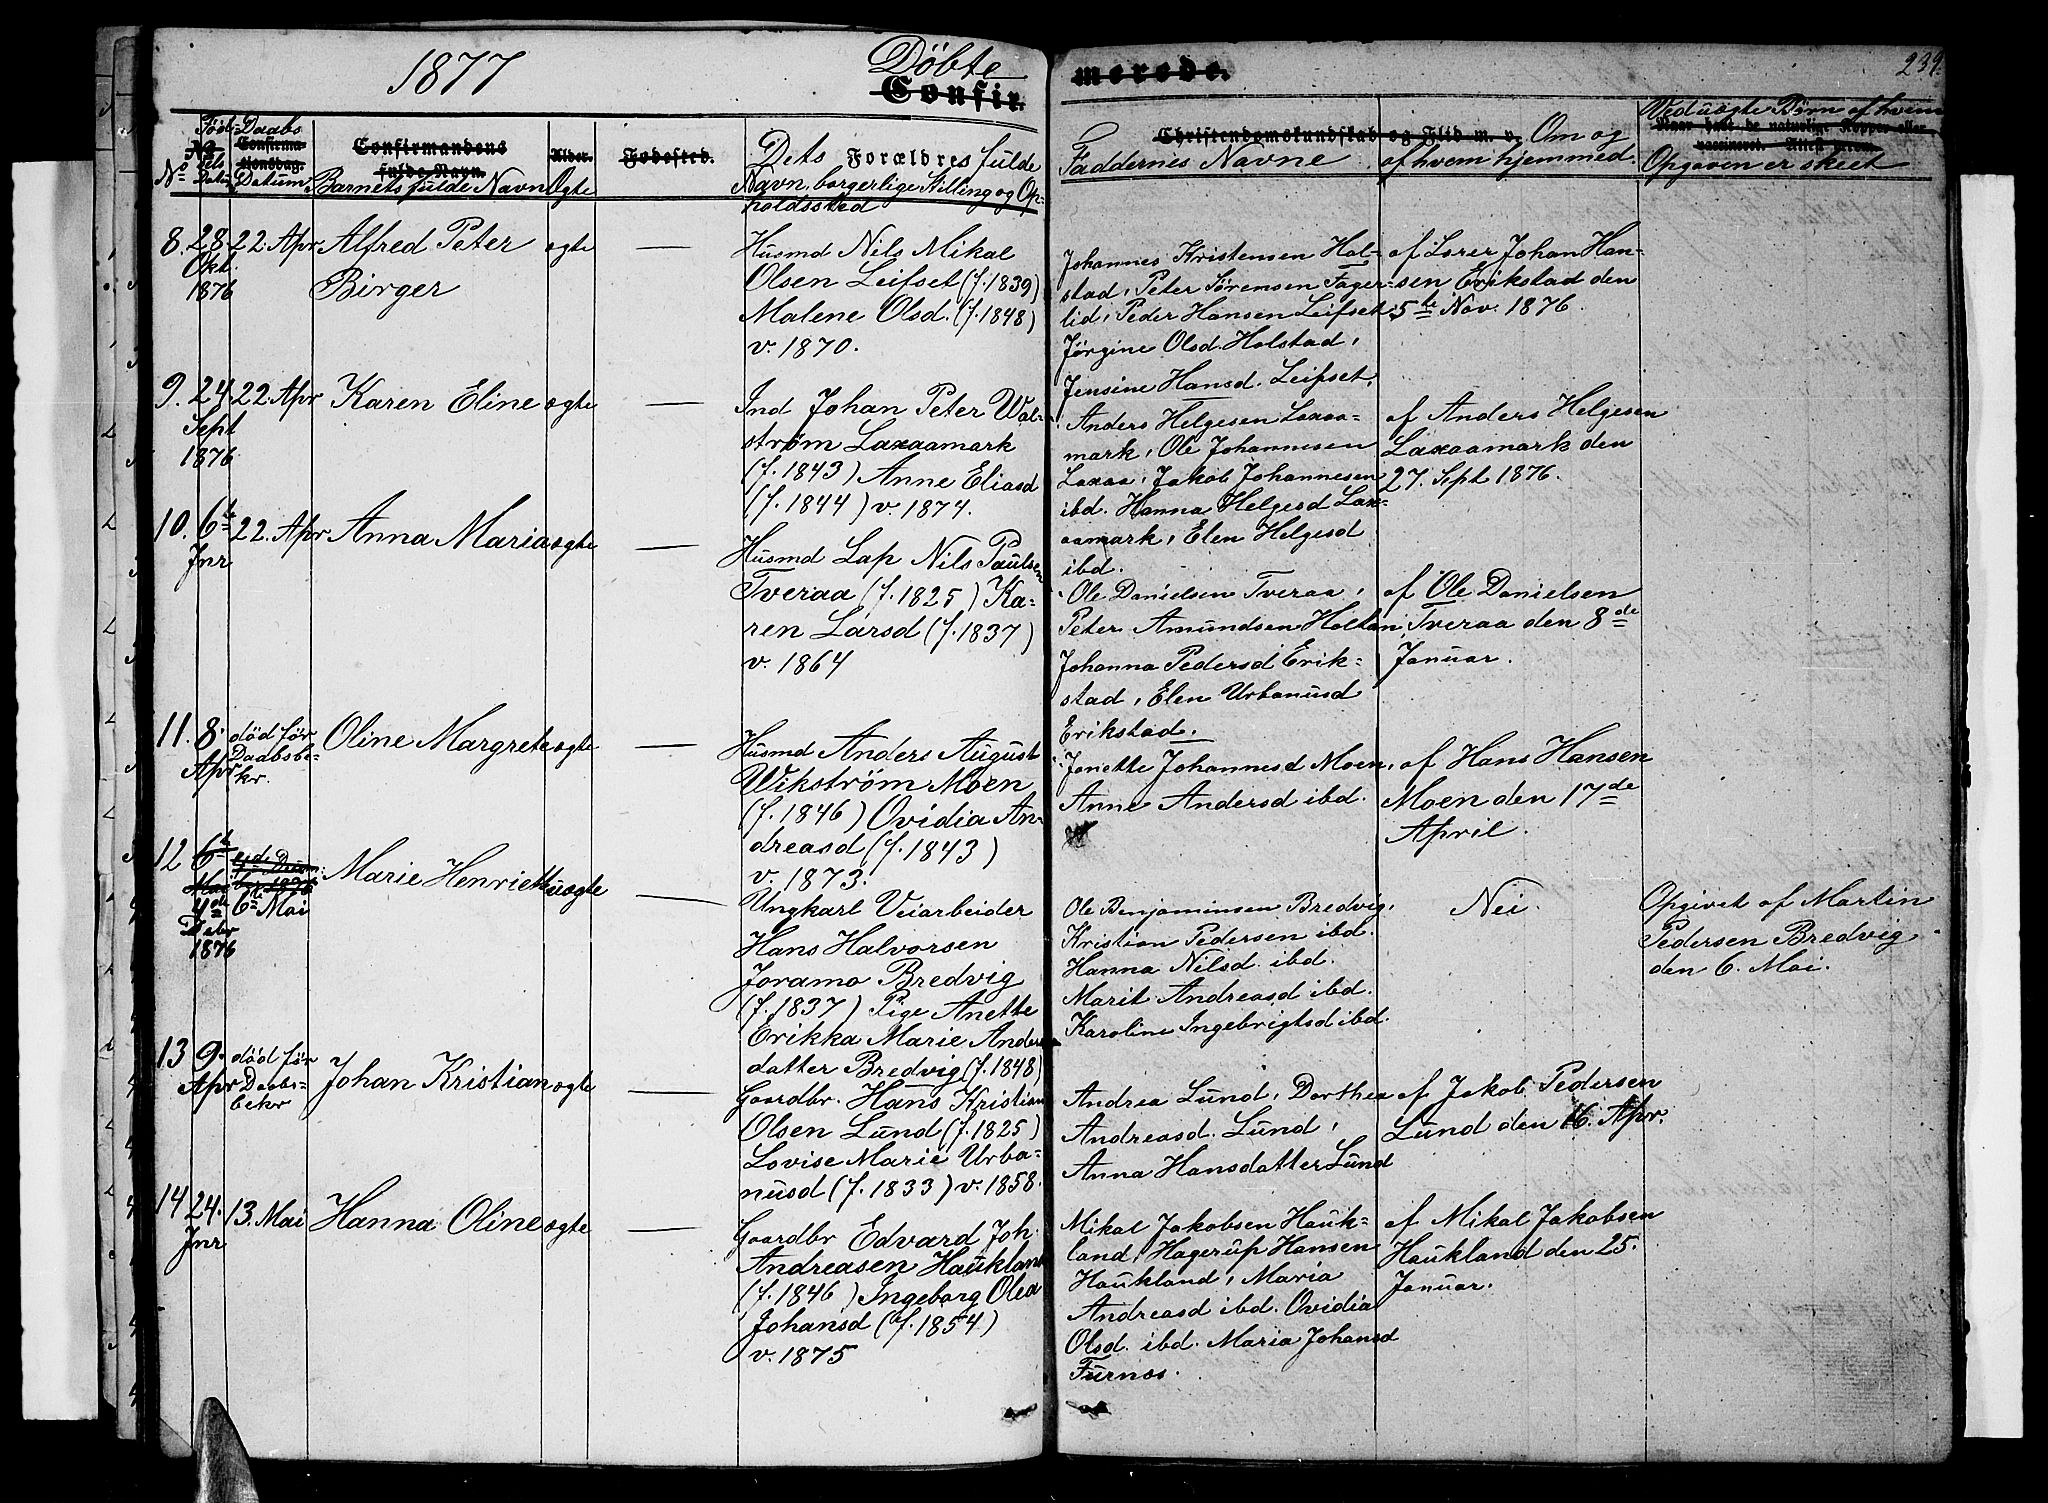 1877
Döbte
Confir
merede.
239.
No
Föd-
sels
Datum
Daabs
Confirma-
tionsdag.
Datum
Confirmandens
fulde Navn.
Barnets fulde Navn
Alder.
Ægte
Fødested.
Dets Forældres fulde
Navn, borgerlige Stilling og Op-
holdssted
Christendomskundskab og Flid m. v.
Faddernes Navne
Om og
af hvem hjemmed.
Ved uægte Børn af hvem
Naar havt de naturlige Kopper eller
vaccineret. Attest derom.
Opgaven er skeet
8. 28. 22. Apr Alfred Peter ægte —
Okt.
1876
Birger
Husmd Nils Mikal
Olsen Leifset (f. 1839)
Malene Olsd. (f. 1848)
v. 1870.
Johannes Kristensen Hol-
stad, Peter Sörensen Fager-
lid, Peder Hansen Leifset
Jörgine Olsd. Holstad,
Jensine Hansd. Leifset,
af Lærer Johan Han-
sen Erikstad den
5te Nov. 1876.
9. 24 22. Apr Karen Eline ægte —
Sept
1876
Ind Johan Peter Wal-
ström Laxaamark
(f. 1843) Anne Eliasd
(f. 1844) v. 1874.
Anders Helgesen Laxaa-
mark, Ole Johannesen
Laxaa, Jakob Johannesen
ibd. Hanna Helgesd Lax-
aamark, Elen Helgesd
ibd.
af Anders Helgesen
Laxaamark den
27. Sept 1876.
10. 6te 22. Apr Anna Maria ægte —
Jnr
Husmd Lap Nils Paulsen
Tveraa (f. 1825) Ka-
ren Larsd (f. 1837)
v. 1864
Ole Danielsen Tveraa,
Peter Amundsen Holtan
Johanna Pedersd Erik-
stad, Elen Urbanusd
Erikstad.
af Ole Danielsen
Tveraa den 8de
Januar.
11. 8. död för Oline Margrete ægte —
Apr
Daabsbe-
kr.
Husmd Anders August
Wikström Moen
(f. 1846) Ovidia An-
dreasd (f. 1843)
v. 1873.
Janette Johannesd Moen,
Anne Andersd ibd.
af Hans Hansen
Moen den 17de
April.
12 6te Marie Henriette uægte —
Mai
4de
Debr
1876
6te Mai
Ungkarl Veiarbeider
Hans Halvorsen
Joramo Bredvig
(f. 1837) Pige Anette
Erikka Marie Anders
datter Bredvig (f. 1848)
Ole Benjaminsen Bredvig,
Kristian Pedersen ibd.
Hanna Nilsd. ibd.
Marit Andreasd ibd.
Karoline Ingebrigtsd ibd.
Nei.
Opgivet af Martin
Pedersen Bredvig
den 6. Mai.
13 9. död för Johan Kristian ægte —
Apr
Daabs-
bekr
Gaardbr. Hans Kristian
Olsen Lund (f. 1825)
Lovise Marie Urba-
nusd (f. 1833) v. 1858.
Andrea Lund, Dorthea
Andreasd. Lund,
Anna Hansdatter Lund
af Jakob Pedersen
Lund den 16. Apr.
14 24. 13. Mai Hanna Oline ægte —
Jnr
Gaardbr Edvard Joh.
Andreasen Haukland
(f. 1846) Ingeborg Olea
Johansd (f. 1854)
v. 1875
Mikal Jakobsen Hauk-
land, Hagerup Hansen
Haukland, Maria
Andreasd ibd. Ovidia
Olsd. ibd. Maria Johansd
Furnes.
af Mikal Jakobsen
Haukland den 25.
Januar.